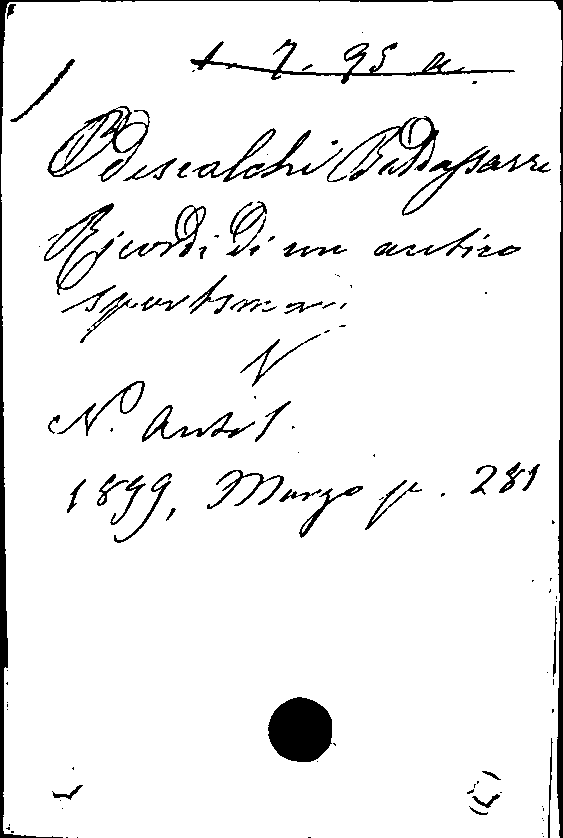 1. 7. 95 a.
Odescalchi Baldassarre
Ricordi di un antico
sportsman
N. Antol.
1899, Marzo p. 281